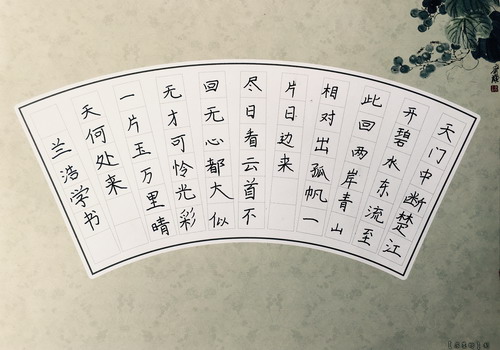 天门中断楚江
开碧水东流至
此回两岸青山
相对出孤帆一
片日边来
尽日看云首不
回无心都大似
无才可怜光彩
一片玉万里晴
天何处来
兰浩学书